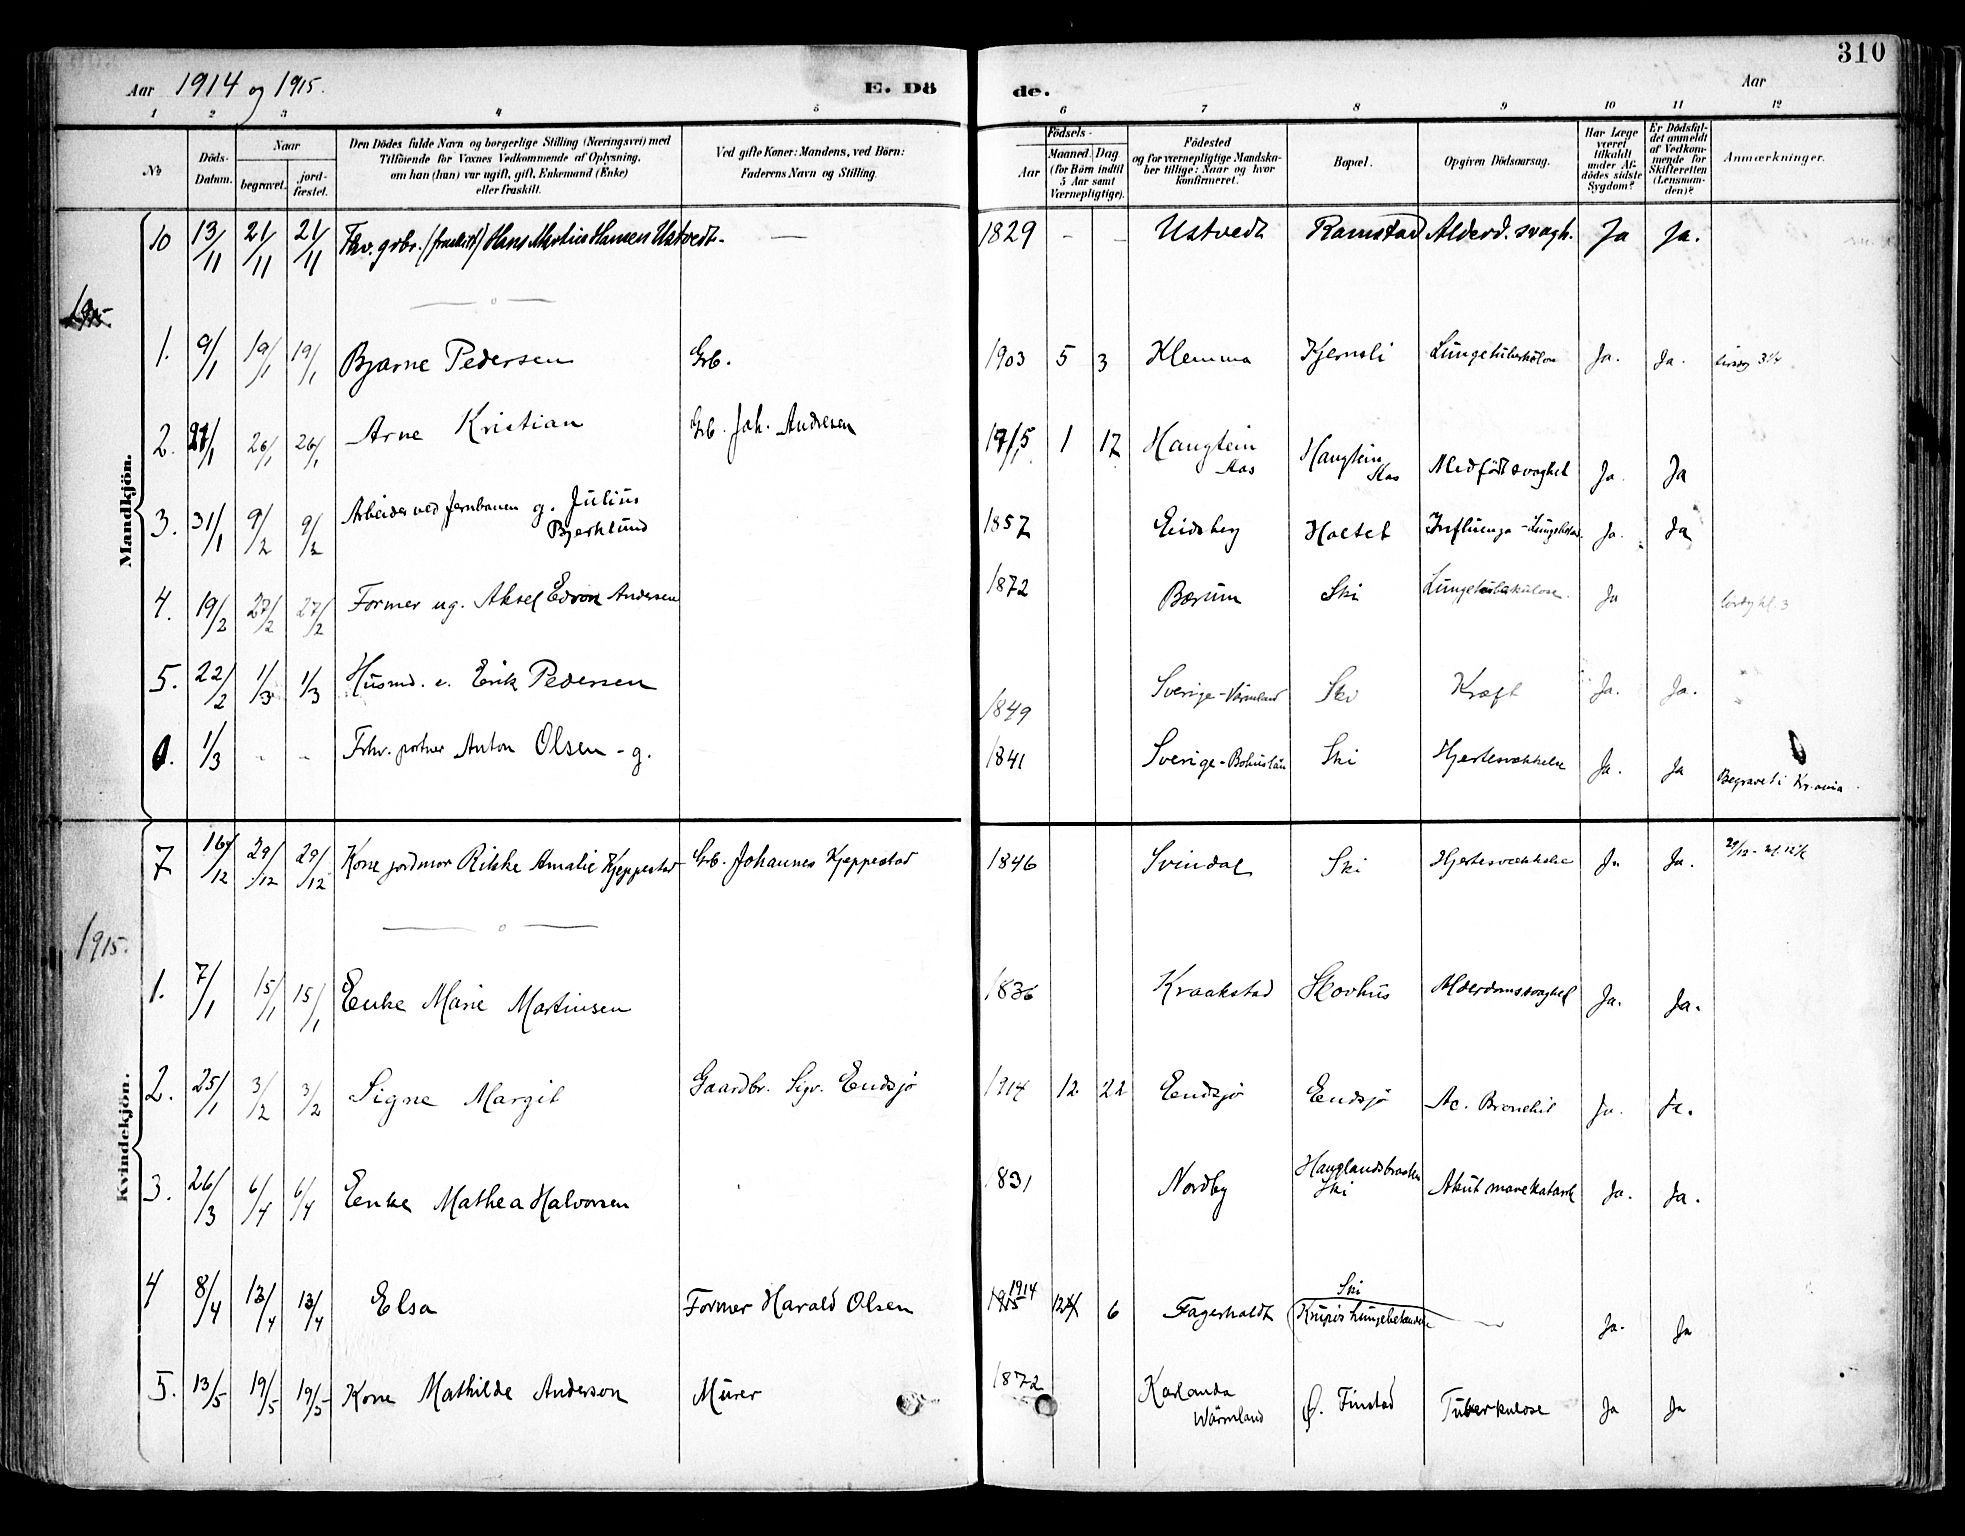 310
Aar 1914 og 1915.
E. Dö
de.
Aar
1 2 3 4 5 6 7 8 9 10 11 12
No
Döds-Datum.
Naar
begravet.
jord-fæstet.
Den Dödes fulde Navn og borgerlige Stilling (Næringsvei) med
Tilföiende for Voxnes Vedkommende af Oplysning,
om han (hun) var ugift, gift, Enkemand (Enke)
eller fraskilt.
Ved gifte Koner: Mandens, ved Börn:
Faderens Navn og Stilling.
Födsels-
Aar
Maaned. Dag
(for Börn indtil
5 Aar samt
Værnepligtige).
Födested
og for værnepligtige Mandska-
ber tillige: Naar og hvor
konfirmeret.
Bopæl.
Opgiven Dödsaarsag.
Har Læge
været
tilkaldt
under Af-
dödes sidste
Sygdom?
Er Dödsfal-
det anmeldt
af Vedkom-
mende for
Skifteretten
(Lensman-
den)?
Anmærkninger.
Mandkjön.
10 13/11 21/11 21/11 Fhv. grbr. (fraskilt) Hans Martius Hansen Ustvedt. — 1829 – – Ustvedt Ramstad Alderd. svagh. Ja Ja.
1915.
1. 9/1 19/1 19/1 Bjarne Pedersen Grb. 1903 5 3 Klemma Kjernsli Lungetuberkulose Ja. Ja.
2. 21/1 26/1 26/1 Arne Kristian Grb. Joh. Andresen 1915 1 17 Haugtein Aas Haugtein Aas Medfödt svaghet Ja. Ja
3. 31/1 9/2 9/2 Arbeider ved Jernbanen g. Julius Bjerklund 1857 Eidsberg Holstet Influenza - Ja. Ja
4. 19/2 27/2 27/2 Former ug. Aksel Edvon Andersen 1872 Bærum Ski Lungetuberkulose. Ja
5. 22/2 1/3 1/3 Husmd. e. Erik Pedersen 1849 Sverige - Värmland Ski Kræft Ja. Ja.
6. 1/3 - - Fhv. portner Anton Olsen - g. 1841 Sverige - Bohuslän Ski Hjertesvækkelse Ja. Ja Begravet i Kr.ania.
Kvindekjön.
7 16/12 29/12 29/12 Kone jordmor Rikke Amalie Kjeppestad Grb. Johannes Kjeppestad 1846 Svindal Ski Hjertesvækkelse Ja Ja.
1915.
1. 7/1 15/1 15/1 Enke Marie Martinsen 1836 Kraakstad Skovhus Alderdomssvaghet Ja. Ja.
2. 25/1 3/2 3/2 Signe Margit Gaardbr. Sigv. Endsjö 1914 12 22 Endsjö Endsjö Ac. Bronchit Ja. Ja.
3. 26/3 6/4 6/4 Enke Mathea Halvorsen 1831 Nordby Hauglandsbraaten Ski Akut mavekatarh Ja. Ja.
4 8/4 13/4 13/4 Elsa Former Harald Olsen 1915 1914 12 6 Fagerholdt Ski Krupøs Lungebetændelse Ja. Ja
5. 13/5 19/5 19/5 Kone Mathilde Anderson Murer 1872 Karlanda Wärmland Ø. Finstad Tuberkulose Ja Ja